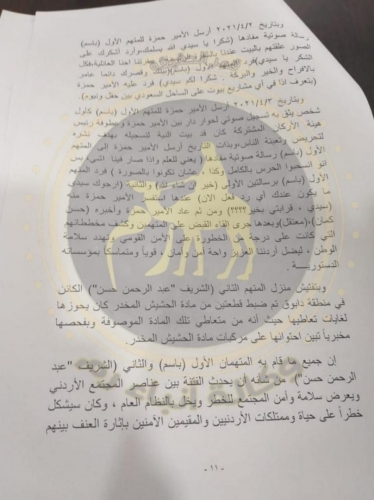 وبتاريخ ٢٠٢١/٤/٢ أرسل الأمير حمزة للمتهم الأول (باسم)
رسالة صوتية مفادها (شكرا يا سيدي الله يسلمك وارد أشكرك على
الشكر يا سيدي) فرد المتهم الأول (باسم) وقصرك دائما عامر
بالافراح والخير والبركة. شكرا لكم سيدي) فرد عليه الأمير حمزة
(بتعرف اذا في أي مشاريع بيوت على الساحل السعودي بين حقل ونيوم).
وبتاريخ ٢٠٢١/٤/٣ أرسل الأمير حمزة للمتهم الأول (باسم)
شخص يثق به تسجيل صوتي لحوار دار بين الأمير حمزة وعطوفة رئيس
هيئة الأركان المشتركة كان قد بيت النية لتسجيله بهدف نشره
للتحريض وتعبئة الناس، وبذات التاريخ أرسل الأمير حمزة إلى المتهم
الأول (باسم) رسالة صوتية مفادها (يعني للعلم واذا صار فينا اشي، بس
انو انسحبوا الحرس بالكامل وكذا عشان تكونوا بالصورة) فرد المتهم
الأول (باسم) برسالتين الأولى (خير ان شاء لله) والثانية (ارجوك سيدي
ما يكون عندك أي رد فعل الان) عندها استفسر الأمير حمزة منه
(سيدي، قرايبي بخير؟؟؟؟) ومن ثم عاد الأمير حمزة وأخبره (حسن
كمان) (معتقل) وبعدها جرى القاء القبض على المتهمين وكشف مخططاتهم
التي كانت على درجة من الخطورة على الأمن القومي وتهدد سلامة
الوطن، ليضل أردننا العزيز واحة أمن وأمان، قوياً ومتماسك بمؤسساته
الدستورية.
وبتفتيش منزل المتهم الثاني (الشريف "عبد الرحمن حسن") الكائن
في منطقة دابوق تم ضبط قطعتين من مادة الحشيش المخدر كان يحوزها
لغايات تعاطيها حيث أنه من متعاطي تلك المادة الموصوفة وبفحصها
مخبرياً تبين احتوائها على مركبات مادة الحشيش المخدر.
إن جميع ما قام به المتهمان الأول (باسم) والثاني (الشريف "عبد
الرحمن حسن") من شأنه أن يحدث الفتنة بين عناصر المجتمع الأردني
ويعرض سلامة وأمن المجتمع للخطر ويخل بالنظام العام، وكان سيشكل
خطراً على حياة وممتلكات الأردنيين والمقيمين الآمنين بإثارة العنف بينهم
- ١١ -